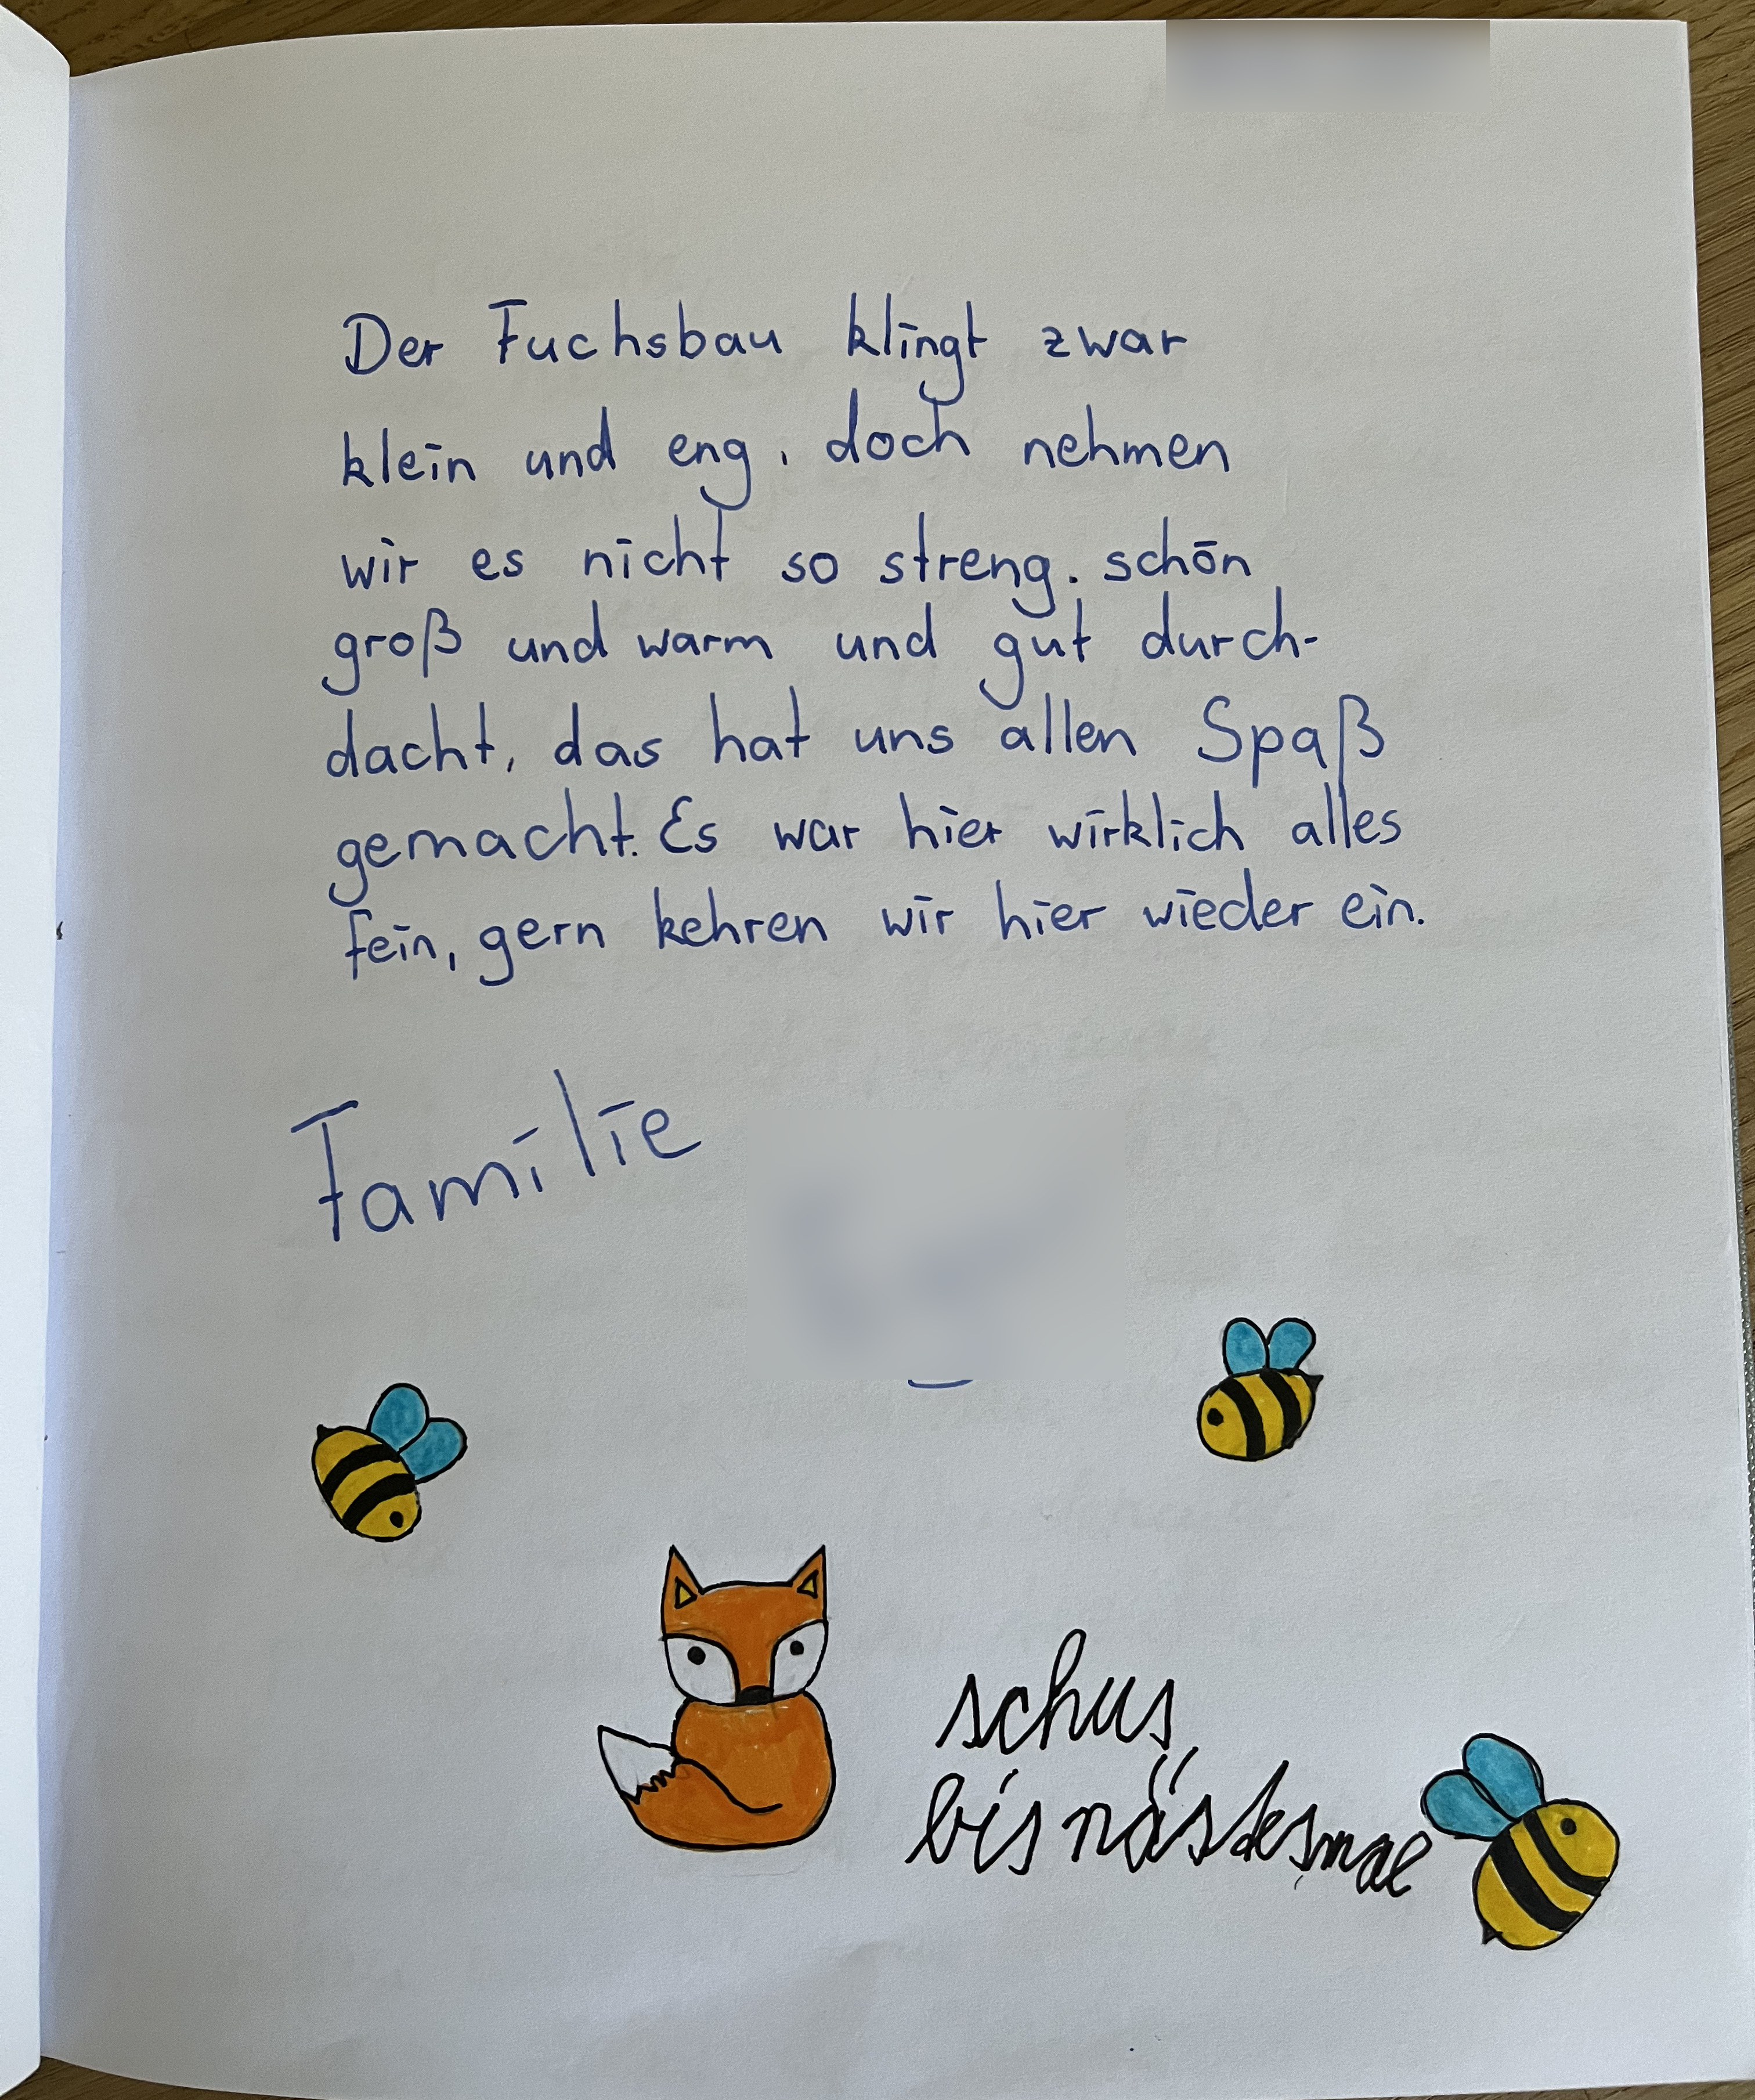 Der Fuchsbau klingt zwar
klein und eng, doch nehmen
wir es nicht so streng. schön
groß und warm und gut durch-
dacht, das hat uns allen Spaß
gemacht. Es war hier wirklich alles
fein, gern kehren wir hier wieder ein.
Familie
schus
bis nästesmal